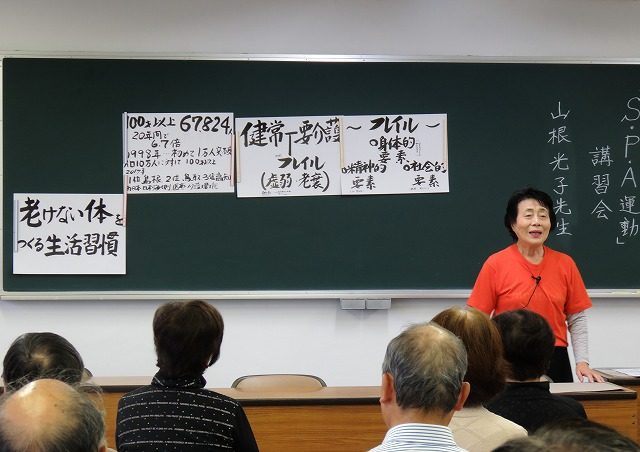 100才以上 67,824人
20年間で
6.7倍
1998年 初めて1万人突破
人口10万人に対して 100才以上
1位 島根 2位 鳥取 3位 高知
健常┬要介護
フレイル
(虚弱・老衰)
～フレイル～
○身体的
要素
○精神的
要素
○社会的
要素
老けない体を
つくる生活習慣
S・P・A運動」
講習会
山根光子先生